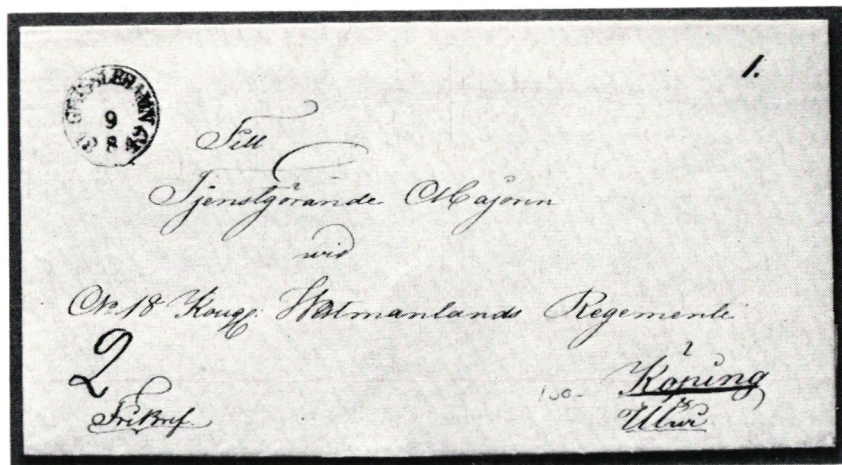 1.
9
8
Till
Tjenstgörande Majoren
wid
No. 18 Kongl. Westmanlands Regemente
2
i
Köping
Fribref.